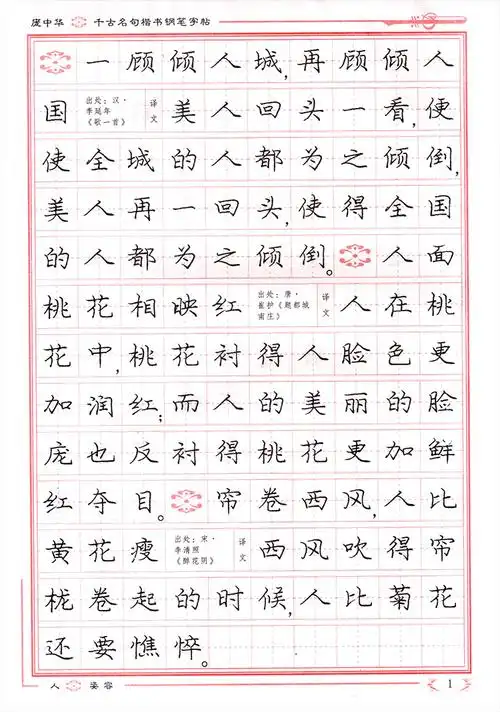 庞中华 千古名句楷书钢笔字帖
一顾倾人城,再顾倾人
国 出处:汉·李延年《歌一首》 译文 美人回头一看,便
使全城的人都为之倾倒,
美人再一回头,使得全国
的人都为之倾倒。 人面
桃花相映红 出处:唐·崔护《题都城南庄》 译文 人在桃
花中,桃花衬得人脸色更
加润红;而人的美丽的脸
庞也反衬得桃花更加鲜
红夺目。 帘卷西风,人比
黄花瘦 出处:宋·李清照《醉花阴》 译文 西风吹得帘
栊卷起的时候,人比菊花
还要憔悴。
人 姿容 1